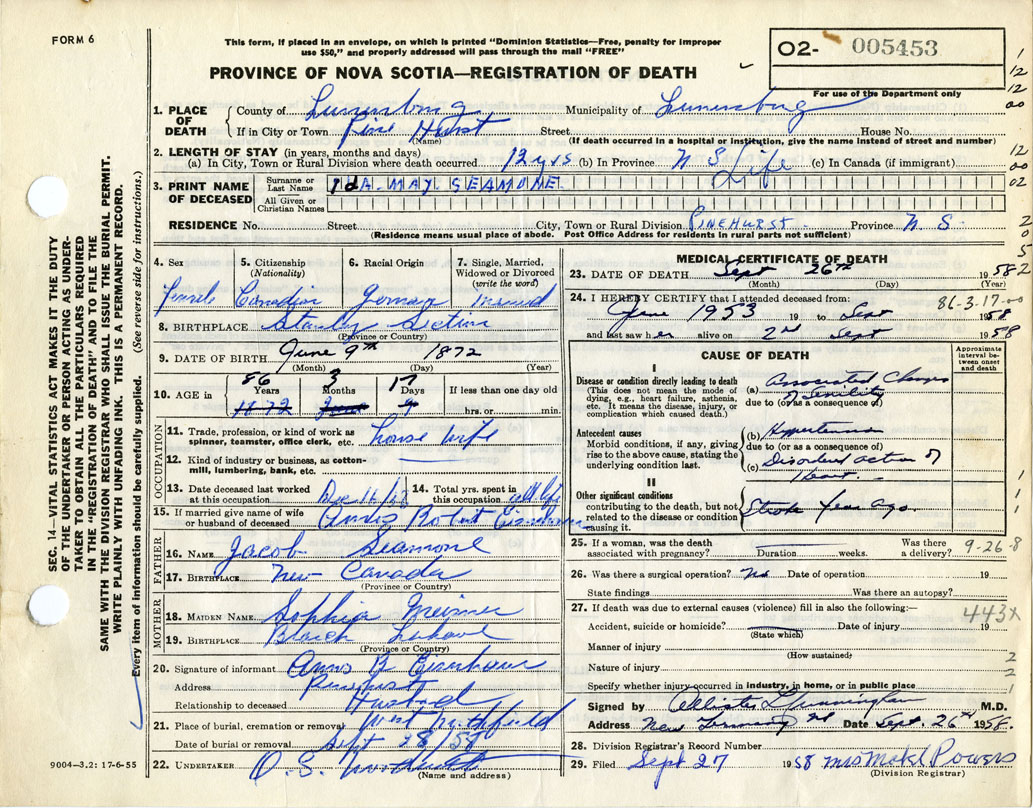 FORM 6
This form, if placed in an envelope, on which is printed "Dominion Statistics—Free, penalty for improper
use $50," and properly addressed will pass through the mail "FREE"
PROVINCE OF NOVA SCOTIA—REGISTRATION OF DEATH
O2- 005453
For use of the Department only
1. PLACE OF DEATH { County of Lunenburg Municipality of Lunenburg
If in City or Town Pine Hurst Street House No.
(Name) (If death occurred in a hospital or institution, give the name instead of street and number)
2. LENGTH OF STAY (in years, months and days)
(a) In City, Town or Rural Division where death occurred 12 yrs (b) In Province N S Life (c) In Canada (if immigrant)
3. PRINT NAME OF DECEASED { Surname or Last Name IdA. MAY. SEAMONE.
All Given or Christian Names
RESIDENCE No. Street City, Town or Rural Division PINEHURST. Province N. S.
(Residence means usual place of abode. Post Office Address for residents in rural parts not sufficient)
4. Sex Female
5. Citizenship (Nationality) Canadian
6. Racial Origin German
7. Single, Married, Widowed or Divorced (write the word) Married
8. BIRTHPLACE Stanley Section
(Province or Country)
9. DATE OF BIRTH June 9th 1872
(Month) (Day) (Year)
10. AGE in { 86 Years 3 Months 17 Days If less than one day old
1872 June 9 hrs. or min.
OCCUPATION
11. Trade, profession, or kind of work as spinner, teamster, office clerk, etc. house wife
12. Kind of industry or business, as cotton-mill, lumbering, bank, etc.
13. Date deceased last worked at this occupation
14. Total yrs. spent in this occupation all life
15. If married give name of wife or husband of deceased Robert Eisenhauer
FATHER
16. NAME Jacob Seamone
17. BIRTHPLACE New Canada
(Province or Country)
MOTHER
18. MAIDEN NAME Sophia
19. BIRTHPLACE
(Province or Country)
20. Signature of informant R. Eisnhauer
Address Pinehurst
Relationship to deceased Husband
21. Place of burial, cremation or removal West Northfield
Date of burial or removal Sept 28/58
22. UNDERTAKER O. S.
(Name and address)
9004—3.2: 17-6-55
MEDICAL CERTIFICATE OF DEATH
23. DATE OF DEATH Sept 26th 1958
(Month) (Day) (Year)
24. I HEREBY CERTIFY that I attended deceased from: 86-3-17.00
June 1953 19 to Sept 1958
and last saw her alive on 2nd Sept 1958
CAUSE OF DEATH
Approximate interval between onset and death
I
Disease or condition directly leading to death
(This does not mean the mode of dying, e.g., heart failure, asthenia, etc. It means the disease, injury, or complication which caused death.)
(a) Associated Changes of senility
due to (or as a consequence of)
Antecedent causes
Morbid conditions, if any, giving rise to the above cause, stating the underlying condition last.
(b) Hypertension
due to (or as a consequence of)
(c) Disordered action of Heart.
II
Other significant conditions
contributing to the death, but not related to the disease or condition causing it.
Stroke year ago.
25. If a woman, was the death associated with pregnancy? Duration weeks. Was there a delivery? 9-26-8
26. Was there a surgical operation? No Date of operation 19
State findings Was there an autopsy?
27. If death was due to external causes (violence) fill in also the following:— 443X
Accident, suicide or homicide? Date of injury 19
(State which)
Manner of injury
(How sustained)
Nature of injury
Specify whether injury occurred in industry, in home, or in public place
Signed by M.D.
Address New Germany Date Sept. 26th 1958.
28. Division Registrar's Record Number
29. Filed Sept 27 1958 Mrs Powers
(Division Registrar)
SEC. 14—VITAL STATISTICS ACT MAKES IT THE DUTY
OF THE UNDERTAKER OR PERSON ACTING AS UNDER-
TAKER TO OBTAIN ALL THE PARTICULARS REQUIRED
IN THE "REGISTRATION OF DEATH" AND TO FILE THE
SAME WITH THE DIVISION REGISTRAR WHO SHALL ISSUE THE BURIAL PERMIT.
WRITE PLAINLY WITH UNFADING INK. THIS IS A PERMANENT RECORD.
Every item of information should be carefully supplied. (See reverse side for instructions.)
1
12
00
12
00
02
2
0
5
2
1
1
1
2
2
1